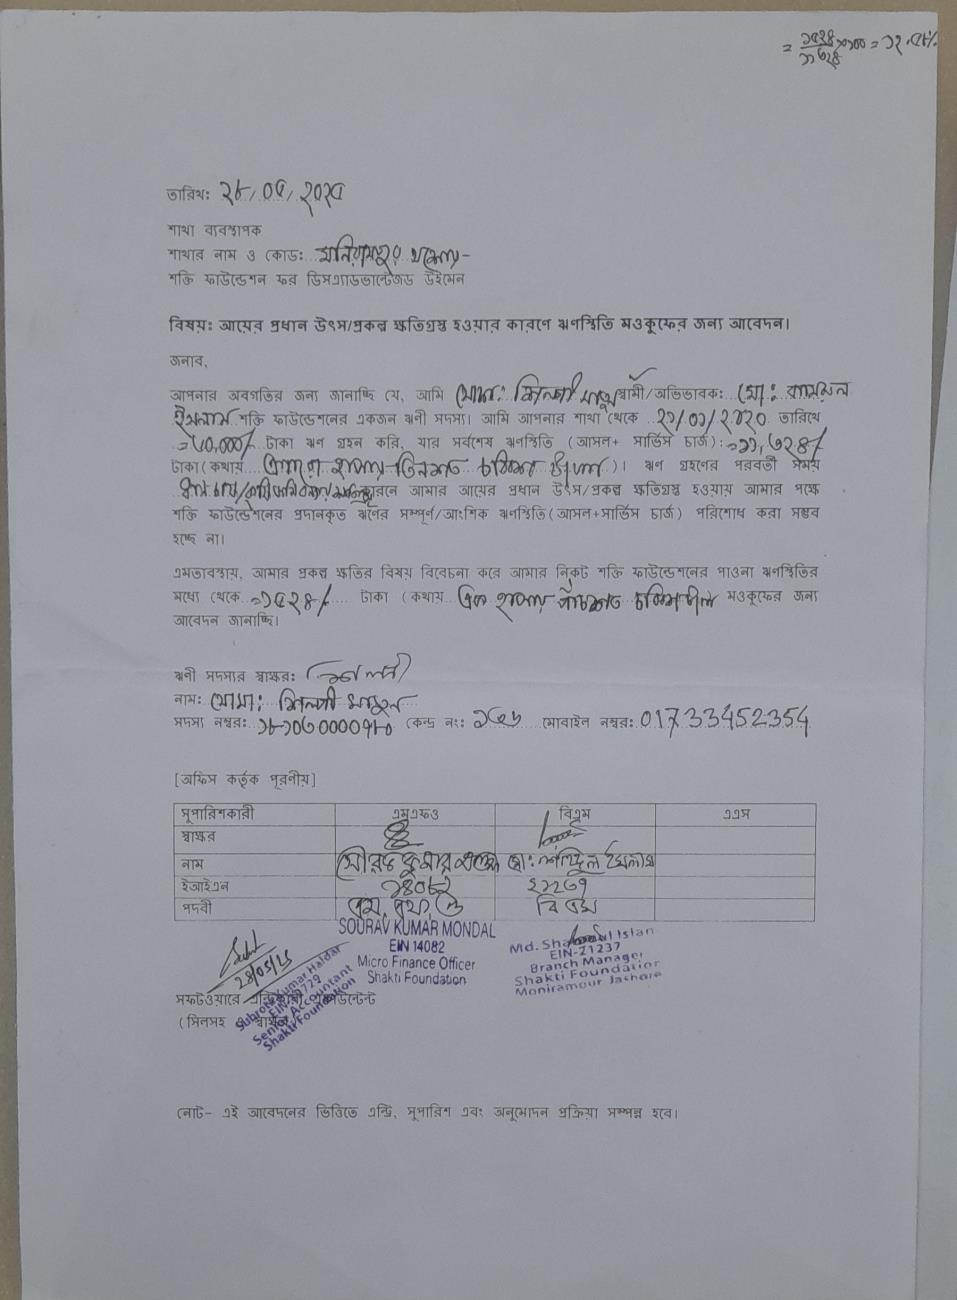 = ১৫২৪/১১৬২৪ × ১০০ = ১২.৫৮%
তারিখ: ২৮/০৫/২০২৫
শাখা ব্যবস্থাপক
শাখার নাম ও কোড: মনিরামপুর যশোর-
শক্তি ফাউন্ডেশন ফর ডিসএ্যাডভান্টেজড উইমেন
বিষয়: আয়ের প্রধান উৎস/প্রকল্প ক্ষতিগ্রস্ত হওয়ার কারণে ঋণস্থিতি মওকুফের জন্য আবেদন।
জনাব,
আপনার অবগতির জন্য জানাচ্ছি যে, আমি মোছা: শিল্পী খাতুন স্বামী/অভিভাবক: মো:
ইসলাম শক্তি ফাউন্ডেশনের একজন ঋণী সদস্য। আমি আপনার শাখা থেকে ২১/০১/২০২০ তারিখে
=৮০,০০০/ টাকা ঋণ গ্রহন করি, যার সর্বশেষ ঋণস্থিতি (আসল+ সার্ভিস চার্জ): =১১,৬২৪/
টাকা(কথায় এগারো হাজার )। ঋণ গ্রহণের পরবর্তী সময়
কারনে আমার আয়ের প্রধান উৎস/প্রকল্প ক্ষতিগ্রস্ত হওয়ায় আমার পক্ষে
শক্তি ফাউন্ডেশনের প্রদানকৃত ঋণের সম্পূর্ণ/আংশিক ঋণস্থিতি(আসল+সার্ভিস চার্জ) পরিশোধ করা সম্ভব
হচ্ছে না।
এমতাবস্থায়, আমার প্রকল্প ক্ষতির বিষয় বিবেচনা করে আমার নিকট শক্তি ফাউন্ডেশনের পাওনা ঋণস্থিতির
মধ্যে থেকে =১৫২৪/ টাকা (কথায় এক হাজার পাঁচশত চব্বিশ মওকুফের জন্য
আবেদন জানাচ্ছি।
ঋণী সদস্যর স্বাক্ষর: শিল্পী
নাম: মোছা: শিল্পী খাতুন
সদস্য নম্বর: কেন্দ্র নং: মোবাইল নম্বর: 01733452354
[অফিস কর্তৃক পূরণীয়]
সুপারিশকারী এমএফও বিএম এএস
স্বাক্ষর
নাম সৌরভ কুমার মন্ডল মো: শহিদুল ইসলাম
ইআইএন ১৪০৮২ ২১২৩৭
পদবী এম, এফ, ও বি এম
SOURAV KUMAR MONDAL
EIN 14082
Micro Finance Officer
Shakti Foundation
Md. Islam
EIN-21237
Branch Manager
Shakti Foundation
Monirampur Jashore
28/05/25
Subrota Kumar Haldar
Senior Accountant
Shakti Foundation
সফটওয়ারে এন্ট্রিকারী একাউন্টেন্ট
(সিলসহ
নোট- এই আবেদনের ভিত্তিতে এন্ট্রি, সুপারিশ এবং অনুমোদন প্রক্রিয়া সম্পন্ন হবে।